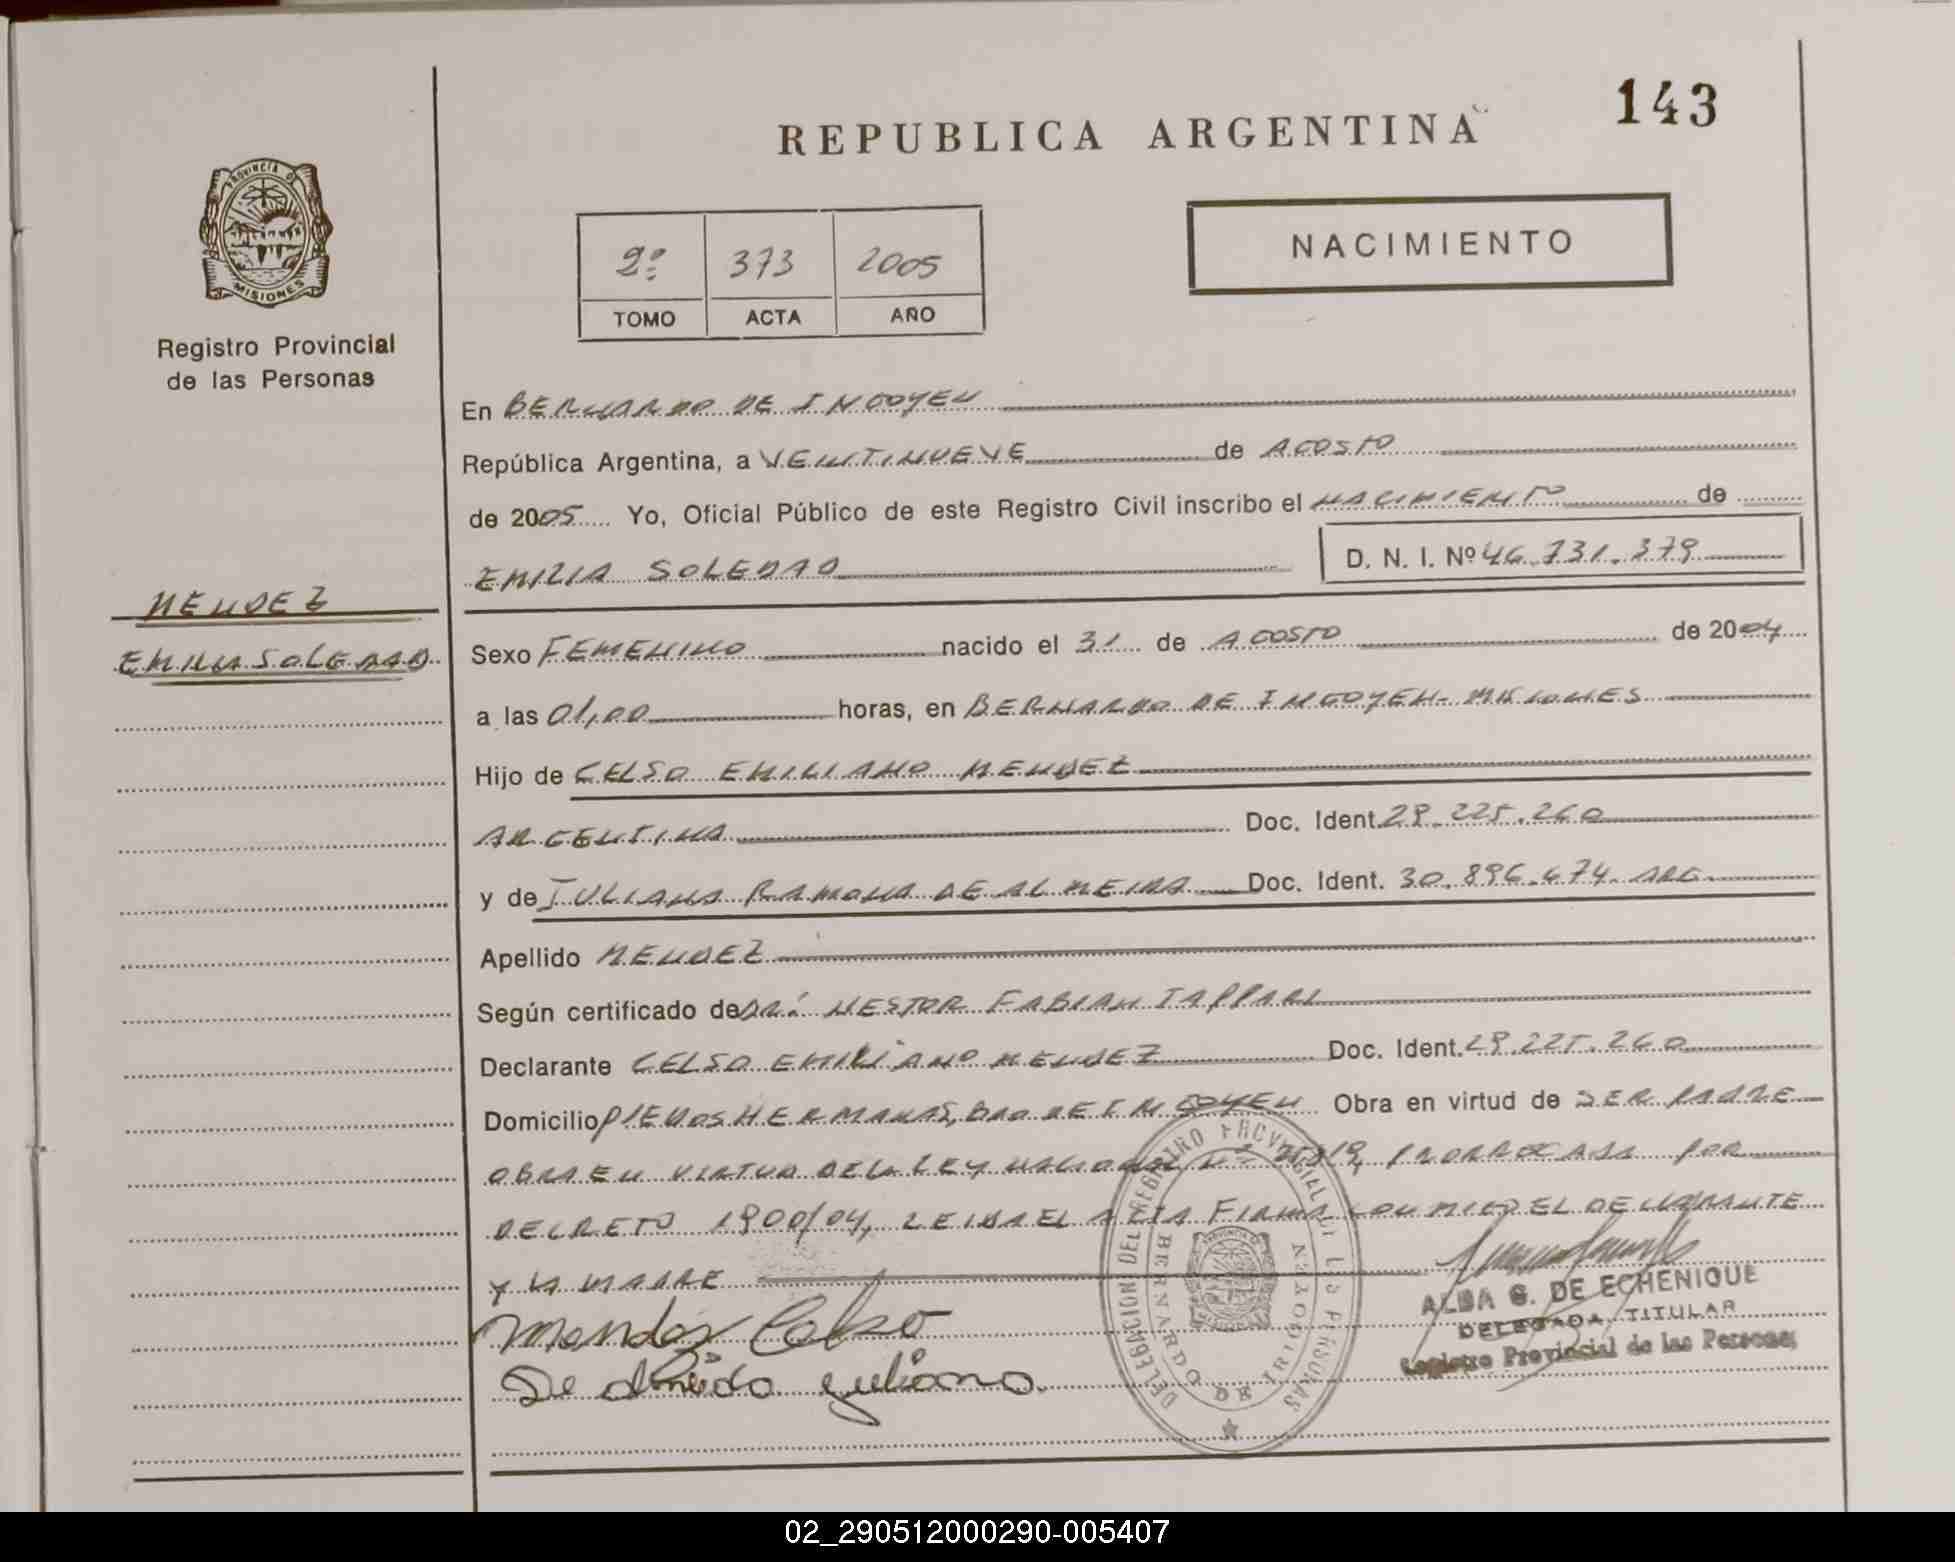 143
REPUBLICA ARGENTINA
PROVINCIA DE
MISIONES
Registro Provincial
de las Personas
2º 373 2005
TOMO ACTA AÑO
NACIMIENTO
En BERNARDO DE IRIGOYEN
República Argentina, a VEINTINUEVE de AGOSTO
de 2005 Yo, Oficial Público de este Registro Civil inscribo el NACIMIENTO de
EMILIA SOLEDAD D. N. I. Nº 46.731.379
MENDEZ
EMILIA SOLEDAD
Sexo FEMENINO nacido el 31 de AGOSTO de 2004
a las 01,00 horas, en BERNARDO DE IRIGOYEN - MISIONES
Hijo de CELSO EMILIANO MENDEZ
ARGENTINA Doc. Ident. 29.225.260
y de JULIANA RAMONA DE ALMEIDA Doc. Ident. 30.896.674 ARG.
Apellido MENDEZ
Según certificado de DR: NESTOR FABIAN TAPPARI
Declarante CELSO EMILIANO MENDEZ Doc. Ident. 29.225.260
Domicilio PIEDOS HERMANAS, BDO DE IRIGOYEN Obra en virtud de SER PADRE
OBRA EN VIRTUD DE LA LEY NACIONAL Nº PRORROGADA POR
DECRETO 1900/04, LEIDA EL ACTA FIRMA CON MIGO EL DECLARANTE
Y LA MADRE
Mendez Celso
De almeida juliana.
DELEGACION DEL REGISTRO PROVINCIAL DE LAS PERSONAS
BERNARDO DE IRIGOYEN
ALBA G. DE ECHENIQUE
DELEGADA TITULAR
Registro Provincial de las Personas
02_290512000290-005407